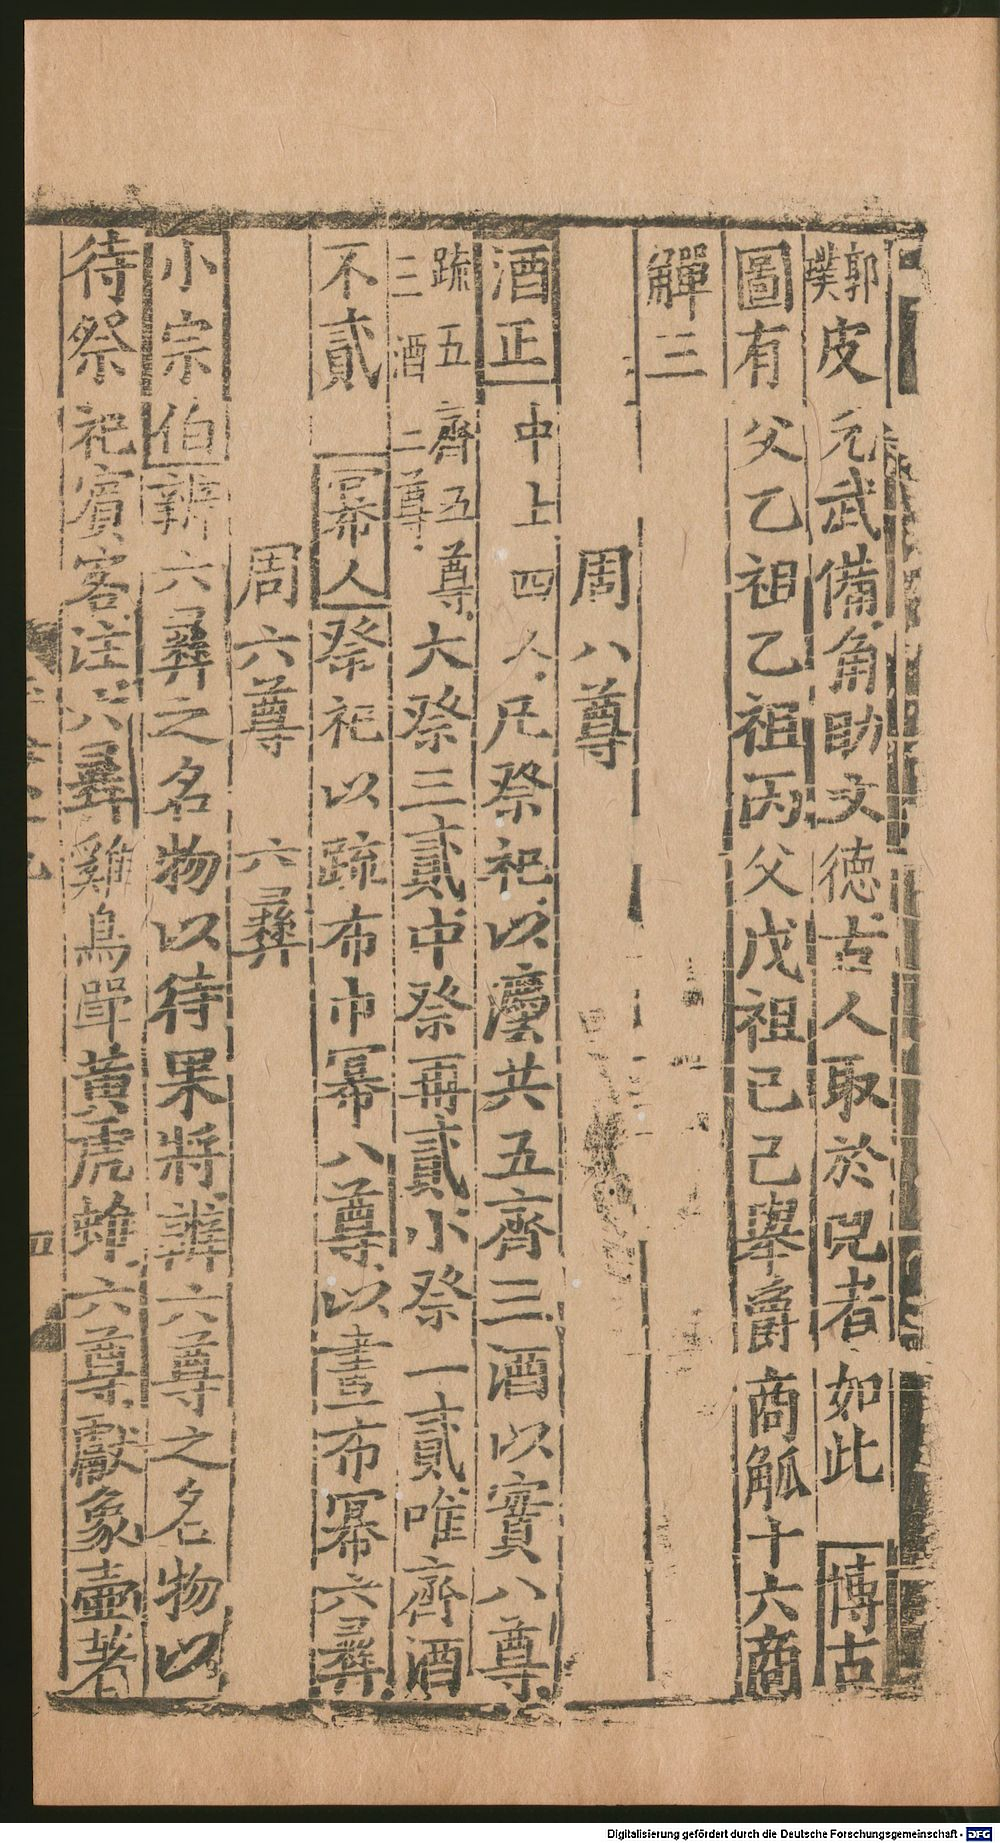 郭璞皮元武備角助文德古人取於兕者如此　博古
圖有父乙祖乙祖丙父戊祖己己舉爵商觚十六商
觶三
周八尊
酒正中上四人凡祭祀以灋共五齊三酒以實八尊
疏五齊五尊三酒三尊大祭三貳中祭再貳小祭一貳唯齊酒
不貳　冪人祭祀以疏布巾冪八尊以畫布冪六彝
周六尊　六彝
小宗伯辨六彝之名物以待果將辨六尊之名物以
待祭祀賓客注六彝雞鳥斝黃虎蜼六尊獻象壷著
Digitalisierung gefördert durch die Deutsche Forschungsgemeinschaft - DFG